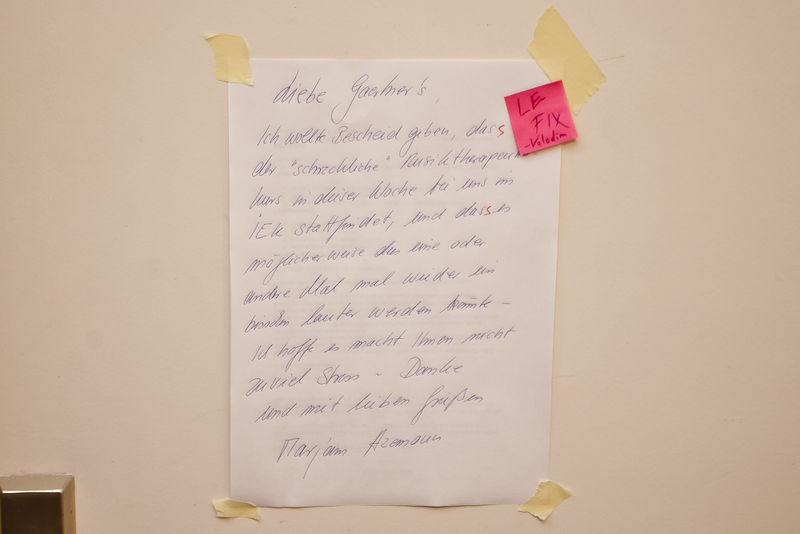 Liebe Gaertner's,
Ich wollte Bescheid geben, dass
der "schreckliche" Musiktherapeuten
kurs in dieser Woche bei uns im
IEK stattfindet, und dass es
möglicherweise das eine oder
andere Mal mal wieder ein
bisschen lauter werden könnte –
Ich hoffe es macht Ihnen nicht
zuviel Stress – Danke
und mit lieben Grüßen
Marjam Azemoun
LE
FIX
-Volodim